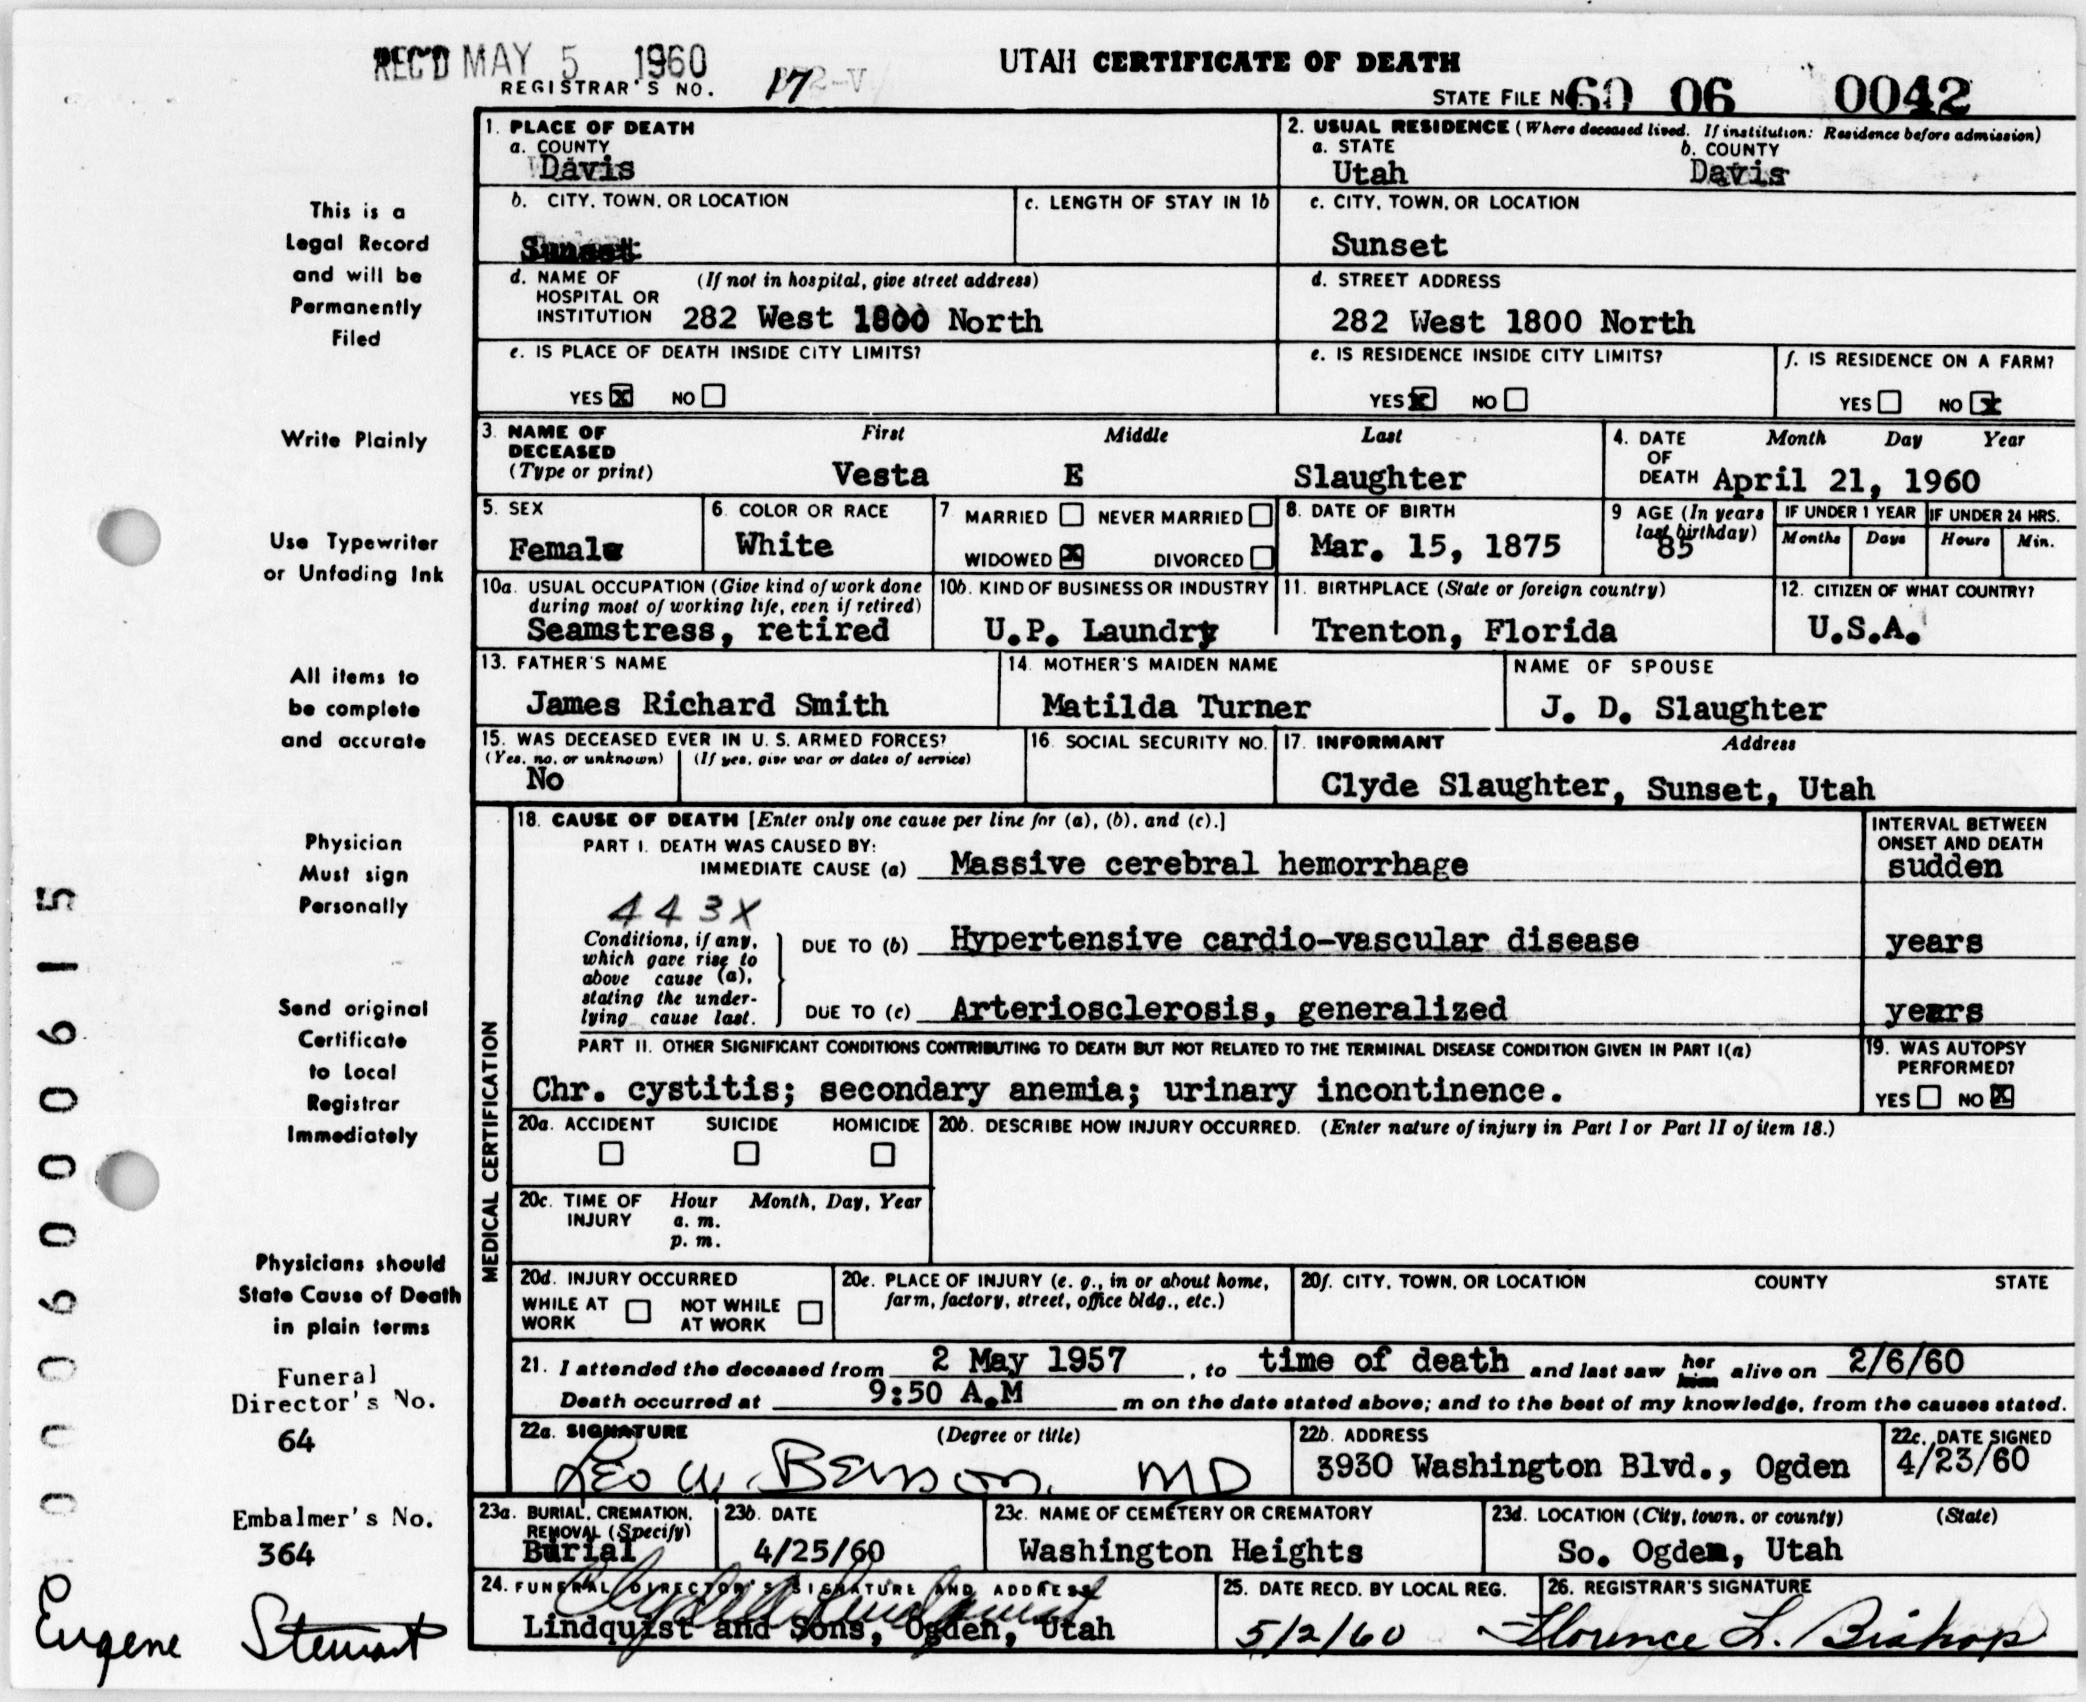 REC'D MAY 5 1960
REGISTRAR'S NO. 17
UTAH CERTIFICATE OF DEATH
STATE FILE No 60 06 0042
This is a
Legal Record
and will be
Permanently
Filed
Write Plainly
Use Typewriter
or Unfading Ink
All items to
be complete
and accurate
Physician
Must sign
Personally
Send original
Certificate
to Local
Registrar
Immediately
Physicians should
State Cause of Death
in plain terms
Funeral
Director's No.
64
Embalmer's No.
364
Eugene Stewart
1. PLACE OF DEATH
a. COUNTY
Davis
2. USUAL RESIDENCE (Where deceased lived. If institution: Residence before admission)
a. STATE b. COUNTY
Utah Davis
b. CITY, TOWN, OR LOCATION
Sunset
c. LENGTH OF STAY IN 1b
c. CITY, TOWN, OR LOCATION
Sunset
d. NAME OF (If not in hospital, give street address)
HOSPITAL OR
INSTITUTION 282 West 1800 North
d. STREET ADDRESS
282 West 1800 North
e. IS PLACE OF DEATH INSIDE CITY LIMITS?
YES X NO
e. IS RESIDENCE INSIDE CITY LIMITS?
YES X NO
f. IS RESIDENCE ON A FARM?
YES NO X
3. NAME OF First Middle Last
DECEASED
(Type or print) Vesta E Slaughter
4. DATE Month Day Year
OF
DEATH April 21, 1960
5. SEX
Female
6. COLOR OR RACE
White
7 MARRIED NEVER MARRIED
WIDOWED X DIVORCED
8. DATE OF BIRTH
Mar. 15, 1875
9 AGE (In years
last birthday)
85
IF UNDER 1 YEAR
Months Days
IF UNDER 24 HRS.
Hours Min.
10a. USUAL OCCUPATION (Give kind of work done
during most of working life, even if retired)
Seamstress, retired
10b. KIND OF BUSINESS OR INDUSTRY
U.P. Laundry
11. BIRTHPLACE (State or foreign country)
Trenton, Florida
12. CITIZEN OF WHAT COUNTRY?
U.S.A.
13. FATHER'S NAME
James Richard Smith
14. MOTHER'S MAIDEN NAME
Matilda Turner
NAME OF SPOUSE
J. D. Slaughter
15. WAS DECEASED EVER IN U. S. ARMED FORCES?
(Yes, no, or unknown) (If yes, give war or dates of service)
No
16. SOCIAL SECURITY NO.
17. INFORMANT Address
Clyde Slaughter, Sunset, Utah
MEDICAL CERTIFICATION
18. CAUSE OF DEATH [Enter only one cause per line for (a), (b), and (c).]
PART I. DEATH WAS CAUSED BY:
IMMEDIATE CAUSE (a) Massive cerebral hemorrhage
INTERVAL BETWEEN
ONSET AND DEATH
sudden
443X
Conditions, if any,
which gave rise to
above cause (a),
stating the under-
lying cause last.
DUE TO (b) Hypertensive cardio-vascular disease years
DUE TO (c) Arteriosclerosis, generalized years
PART II. OTHER SIGNIFICANT CONDITIONS CONTRIBUTING TO DEATH BUT NOT RELATED TO THE TERMINAL DISEASE CONDITION GIVEN IN PART I(a)
Chr. cystitis; secondary anemia; urinary incontinence.
19. WAS AUTOPSY
PERFORMED?
YES NO X
20a. ACCIDENT SUICIDE HOMICIDE
20b. DESCRIBE HOW INJURY OCCURRED. (Enter nature of injury in Part I or Part II of item 18.)
20c. TIME OF Hour Month, Day, Year
INJURY a. m.
p. m.
20d. INJURY OCCURRED
WHILE AT NOT WHILE
WORK AT WORK
20e. PLACE OF INJURY (e. g., in or about home,
farm, factory, street, office bldg., etc.)
20f. CITY, TOWN, OR LOCATION COUNTY STATE
21. I attended the deceased from 2 May 1957, to time of death and last saw her him alive on 2/6/60
Death occurred at 9:50 A.M m on the date stated above; and to the best of my knowledge, from the causes stated.
22a. SIGNATURE (Degree or title)
Leo W. Benson. MD
22b. ADDRESS
3930 Washington Blvd., Ogden
22c. DATE SIGNED
4/23/60
23a. BURIAL, CREMATION,
REMOVAL (Specify)
Burial
23b. DATE
4/25/60
23c. NAME OF CEMETERY OR CREMATORY
Washington Heights
23d. LOCATION (City, town, or county) (State)
So. Ogden, Utah
24. FUNERAL DIRECTOR'S SIGNATURE AND ADDRESS
Lindquist and Sons, Ogden, Utah
25. DATE RECD. BY LOCAL REG.
5/2/60
26. REGISTRAR'S SIGNATURE
Florence L. Bishop